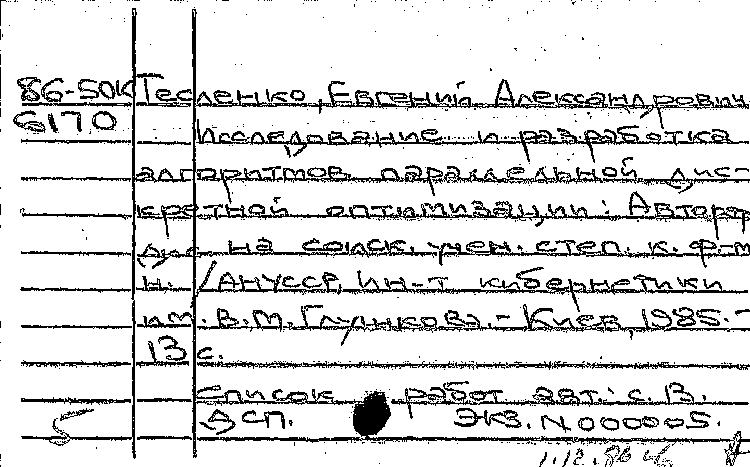 86-50К Тесленко, Евгений Александрович
6170
Исследование и разработка
алгоритмов параллельной дис-
кретной оптимизации: Автореф
дис. на соиск. учен. степ. к. ф-м
н. /АНУССР, Ин-т кибернетики
им. В.М. Глушкова. - Киев, 1985. -
13 с.
Список работ авт.: с. 13.
ДСП. Экз. N 000005.
5
1.12.86